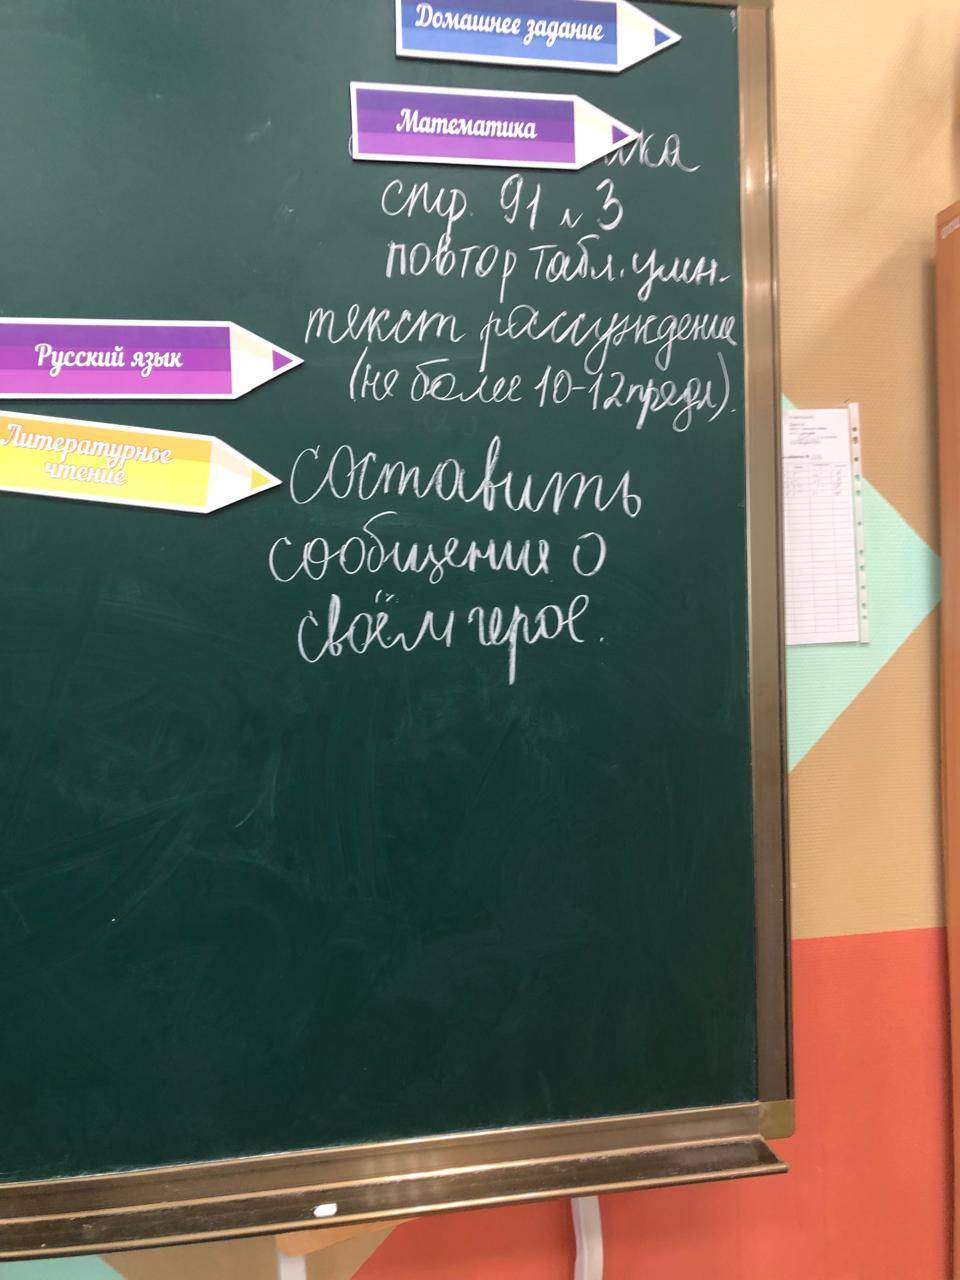 Домашнее задание
Математика
стр. 91 № 3
повтор табл. умн.
Русский язык
текст рассуждение
(не более 10-12 предл).
Литературное
чтение
составить
сообщения о
своём герое.